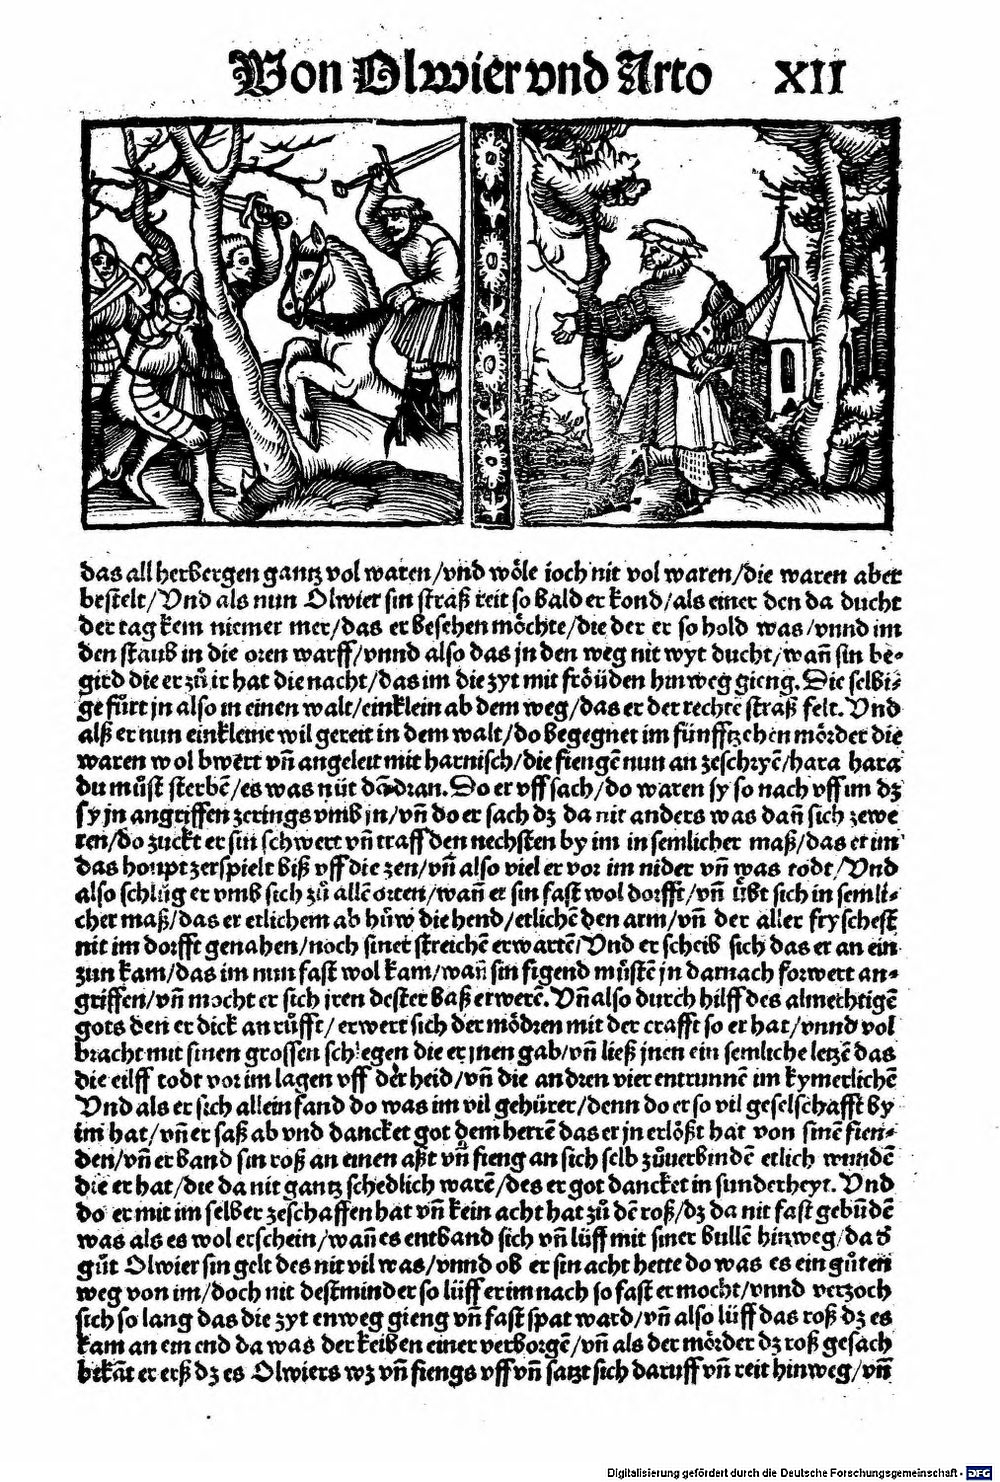 Von Olwier vnd Arto XII
das all herbergen gantz vol waren/vnd wöle ioch nit vol waren/die waren aber
bestelt/Vnd als nun Olwier sin straß reit so bald er kond/als einer den da ducht
der tag kem niemer mer/das er besehen möchte/die der er so hold was/vnnd im
den staub in die oren warff/vnnd also das jn den weg nit wyt ducht/wañ sin be⸗
gird die er zů ir hat die nacht/das im die zyt mit fröüden hinweg gieng. Die selbi⸗
ge fůrt jn also in einen walt/ein klein ab dem weg/das er der rechtē straß felt. Vnd
alß er nun ein kleine wil gereit in dem walt/do begegnet im fünfftzehen mörder die
waren wol bwert vñ angeleit mit harnisch/die fiengē nun an zeschryē/hara hara
du můst sterbē/es was nüt dran. Do er vff sach/do waren sy so nach vff im dz
sy jn angriffen zerings vmb jn/vñ do er sach dz da nit anders was dañ sich zewe
ren/do zuckt er sin schwert vñ traff den nechsten by im in semlicher maß/das er im
das houpt zerspielt biß vff die zen/vñ also viel er vor im nider vñ was todt/Vnd
also schlůg er vmb sich zů allē orten/wañ er sin fast wol dorfft/vñ übt sich in semli⸗
cher maß/das er etlichem ab hůw die hend/etlichē den arm/vñ der aller fryschest
nit im dorfft genahen/noch siner streichē erwartē/Vnd er scheib sich das er an ein
zun kam/das im nun fast wol kam/wañ sin figend můstē jn darnach forwert an⸗
griffen/vñ mocht er sich jren dester baß erwerē. Vñ also durch hilff des almechtigē
gots den er dick an růfft/erwert sich der mödren mit der crafft so er hat/vnnd vol
bracht mit sinen grossen schlegen die er jnen gab/vñ ließ jnen ein semliche letzē das
die eilff todt vor im lagen vff der heid/vñ die andren vier entrunnē im kymerlichē
Vnd als er sich allein fand do was im vil gehürer/denn do er so vil geselschafft by
im hat/vñ er saß ab vnd dancket got dem herrē das er jn erlößt hat von sinē fien⸗
den/vñ er band sin roß an einen aßt vñ fieng an sich selb zůuerbindē etlich wundē
die er hat/die da nit gantz schedlich warē/des er got dancket in sunderheyt. Vnd
do er mit im selber zeschaffen hat vñ kein acht hat zů dē roß/dz da nit fast gebūdē
was als es wol erschein/wañ es entband sich vñ lüff mit siner bullē hinweg/da
gůt Olwier sin gelt des nit vil was/vnnd ob er sin acht hette do was es ein gůten
weg von im/doch nit destminder so lüff er im nach so fast er mocht/vnnd verzoch
sich so lang das die zyt enweg gieng vñ fast spat ward/vñ also lüff das roß dz es
kam an em end da was der keiben einer verborgē/vñ als der mörder dz roß gesach
bekāt er erß dz es Olwiers wz vñ fiengs vff vñ satzt sich daruff vñ reit hinweg/vñ
Digitalisierung gefördert durch die Deutsche Forschungsgemeinschaft - DFG